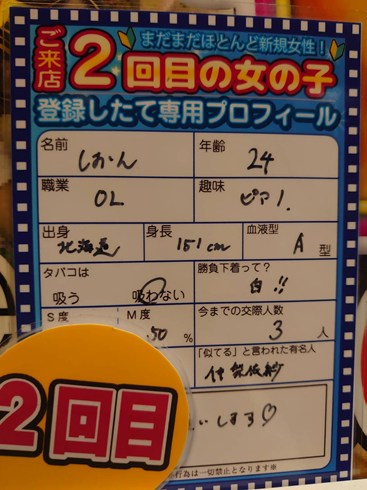 まだまだほとんど新規女性!
ご来店2回目の女の子
登録したて専用プロフィール
名前 しおん 年齢 24
職業 OL 趣味 ピアノ
出身 北海道 身長 151cm 血液型 A型
タバコは 吸う 吸わない
勝負下着って? 白!!
S度 M度 50%
今までの交際人数 3人
「似てる」と言われた有名人
いします♡
2回目
行為は一切禁止となります※